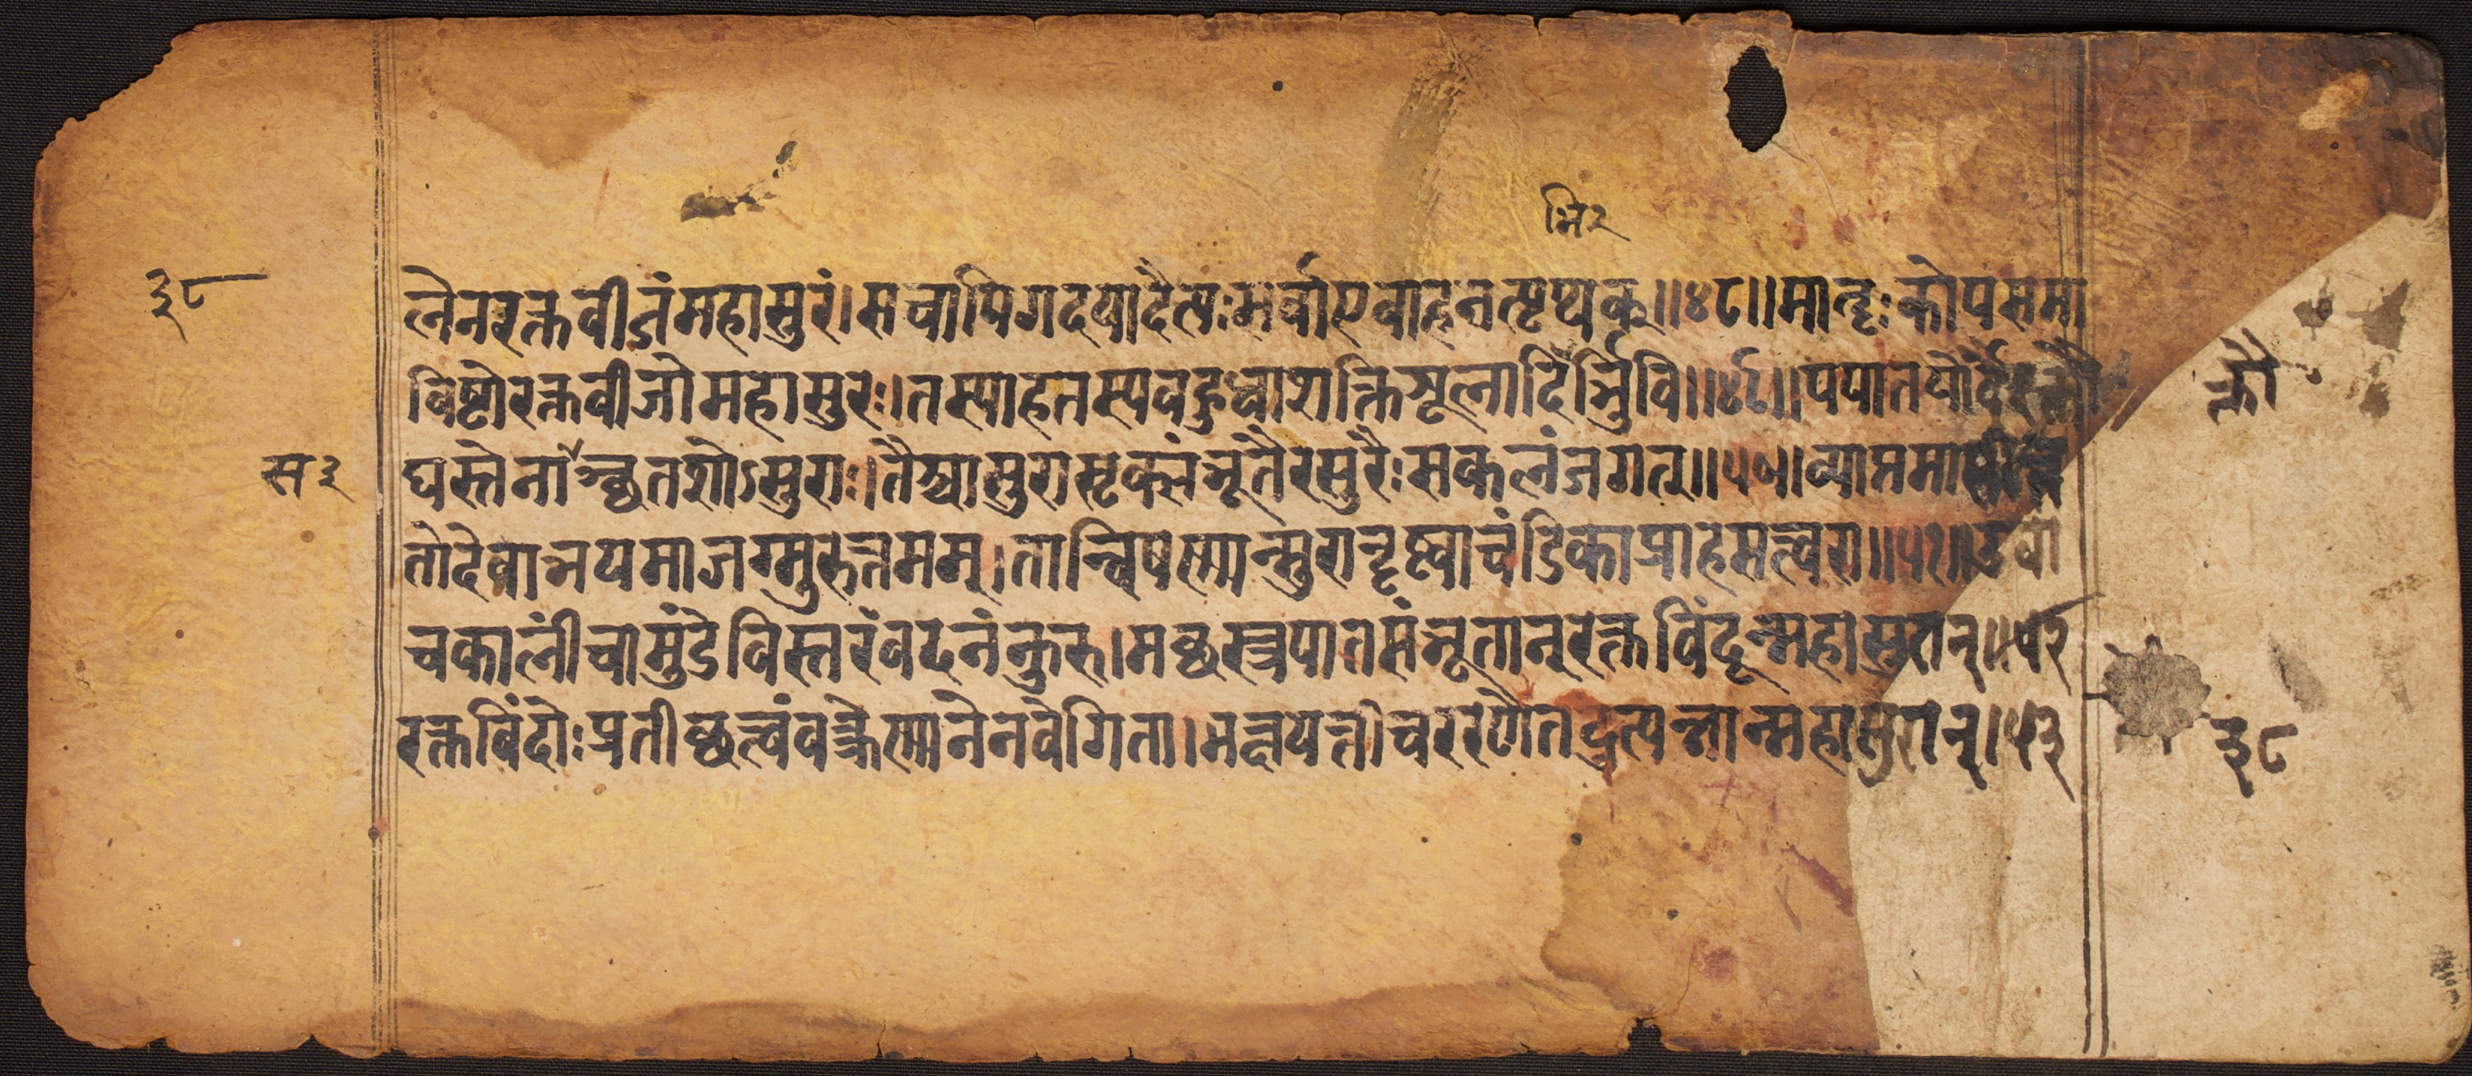 भि२
३८
लेनरक्तवीजंमहासुरं।सचापिगदयादैत्यःसर्वाएवाहनत्पृथक्॥४८॥मातॄःकोपसमा
विष्टोरक्तवीजोमहासुरः।तस्याहतस्यवहुधाशक्तिशूलादिर्भुवि॥४९॥पपातयोवैरक्तौ
क्तौ
स३
घस्तेनाञ्छतशोऽसुराः।तैश्चासुरासृक्संभूतैरसुरैःसकलंजगत्॥५०॥व्याप्तमासीत्त
तोदेवाभयमाजग्मुरुत्तमम्।तान्विषण्णान्सुरान्दृष्ट्वाचंडिकाप्राहसत्वरा॥५१॥उवा
चकालींचामुंडेविस्तरंवदनंकुरु।मछस्त्रपातसंभूतान्रक्तविंदून्महासुरान्॥५२
रक्तविंदोःप्रतीछत्वंवक्त्रेणानेनवेगिता।भक्षयन्तीचररणेतदुत्पन्नान्महासुरान्।५३
३८